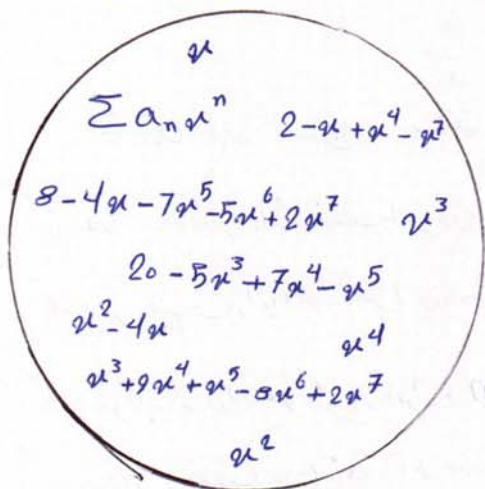 x
∑ aₙxⁿ 2 - x + x⁴ - x⁷
8 - 4x - 7x⁵ - 5x⁶ + 2x⁷ x³
20 - 5x³ + 7x⁴ - x⁵
x² - 4x x⁴
x³ + 9x⁴ + x⁵ - 8x⁶ + 2x⁷
x²